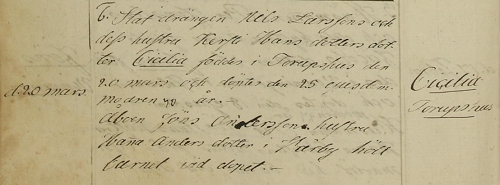 6. Statdrängen Nils Larssons och
dess hustru Kersti Hans dotters dot-
ter Cicilia föddes i Torupshus den
d. 20 mars.
20 mars och döptes den 25 ejusdem
modren 40 år.
Åboen Jöns Anderssons hustru
Hana Anders dotter i Hårby höll
barnet vid dopet.-
Cicilia
Torupshus